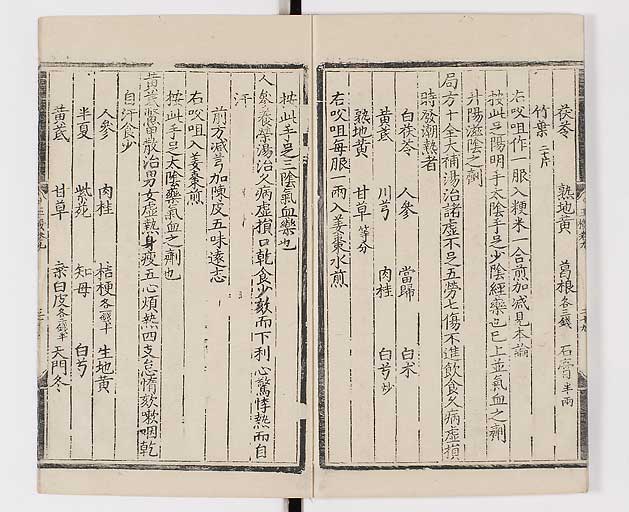 茯苓 熟地黄 葛根各三錢 石膏半兩
竹葉二十片
右㕮咀作一服入粳米一合煎加减見本論
按此足陽明手太陰手足少陰經藥也已上並氣血之劑
升陽滋陰之劑
局方十全大補湯治諸虚不足五勞七傷不進飲食久病虚損
時發潮熱者
白茯苓 人參 當歸 白朮
黄芪 川芎 肉桂 白芍炒
熟地黄 甘草等分
右㕮咀每服一兩入姜棗水煎
按此手足三陰氣血藥也
人參養榮湯治久病虚損口乾食少欬而下利心驚悸熱而自
汗
前方减芎加陳皮五味遠志
右㕮咀入姜棗煎
按此手足太陰藥氣血之劑也
黄芪鱉甲散治男女虚熱身瘦五心煩熱四支怠惰欬嗽咽乾
自汗食少
人參 肉桂 桔梗各 生地黄
半夏 紫菀 知母 白芍
黄芪 甘草 桑白皮各 天門冬